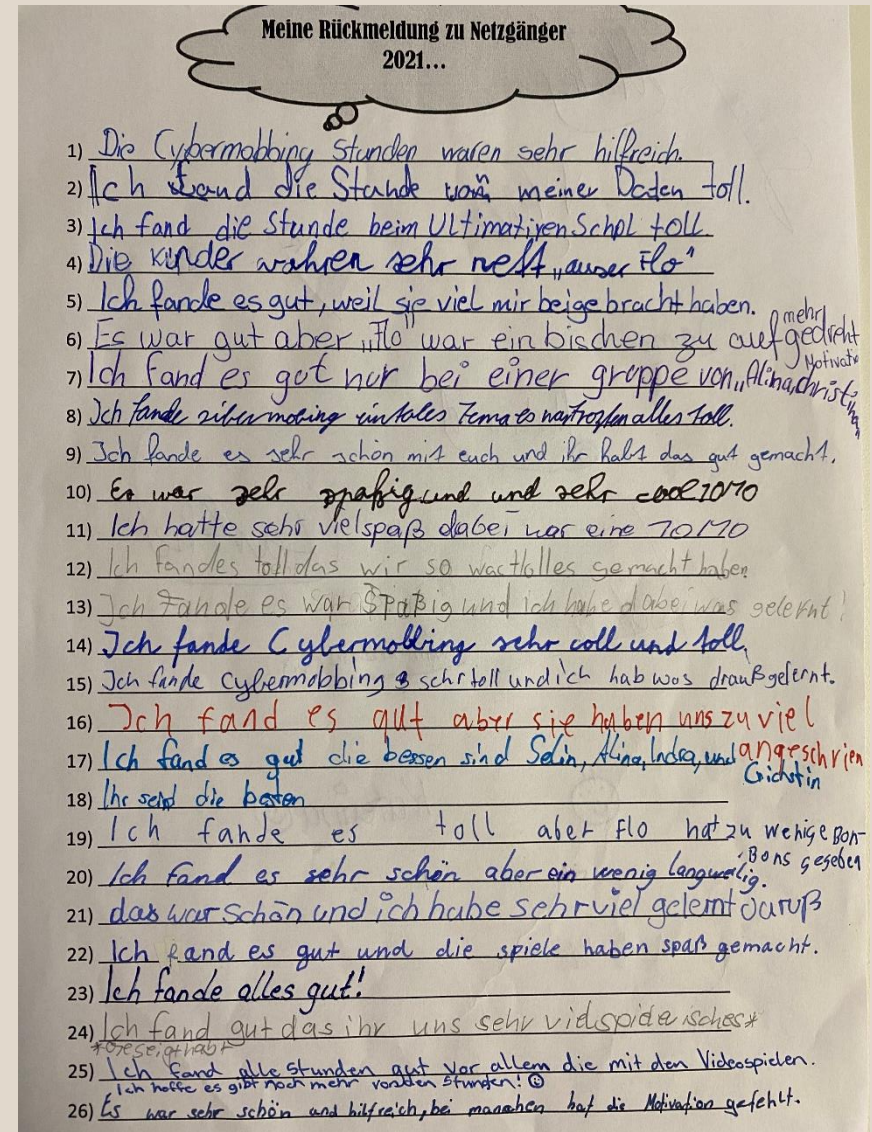 Meine Rückmeldung zu Netzgänger
2021...
1) Die Cybermobbing Stunden waren sehr hilfreich.
2) Ich fand die Stunde von meiner Daten toll.
3) Ich fand die Stunde beim Ultimativen Schpl toll.
4) Die Kinder wahren sehr nett „auser Flo"
5) Ich fande es gut, weil sie viel mir beigebracht haben.
6) Es war gut aber „Flo" war ein bischen zu aufgedreht
7) Ich fand es got nur bei einer groppe von „Alina christ mehr Motivati
8) Ich fande zibermobing ein toles Tema es war trozten alles toll.
9) Ich fande es sehr schön mit euch und ihr habt das gut gemacht.
10) Es war sehr spaßig und und sehr cool 10/10
11) Ich hatte sehr viel spaß dabei war eine 10/10
12) Ich fand es toll das wir so was tolles gemacht haben
13) Ich Fande es war Spaßig und ich habe dabei was gelernt!
14) Ich fande Cybermobbing sehr coll und toll.
15) Ich fande Cybermobbing sehr toll und ich hab was drauß gelernt.
16) Ich fand es gut aber sie haben uns zu viel
angeschrien
17) Ich fand es gut die bessen sind Selin, Alina, Indra, und
Crichstin
18) Ihr seid die besten
19) Ich fande es toll aber Flo hat zu wenige Bon-
Bons gegeben
20) Ich fand es sehr schön aber ein wenig langweilig.
21) das war schön und ich habe sehr viel gelernt daruß
22) Ich fand es gut und die spiele haben spaß gemacht.
23) Ich fande alles gut!
24) Ich fand gut das ihr uns sehr viel
25) Ich fand alle Stunden gut vor allem die mit den Videospielen.
Ich hoffe es gibt noch mehr von den Stunden! ☺
26) Es war sehr schön und hilfreich, bei manchen hat die Motivation gefehlt.